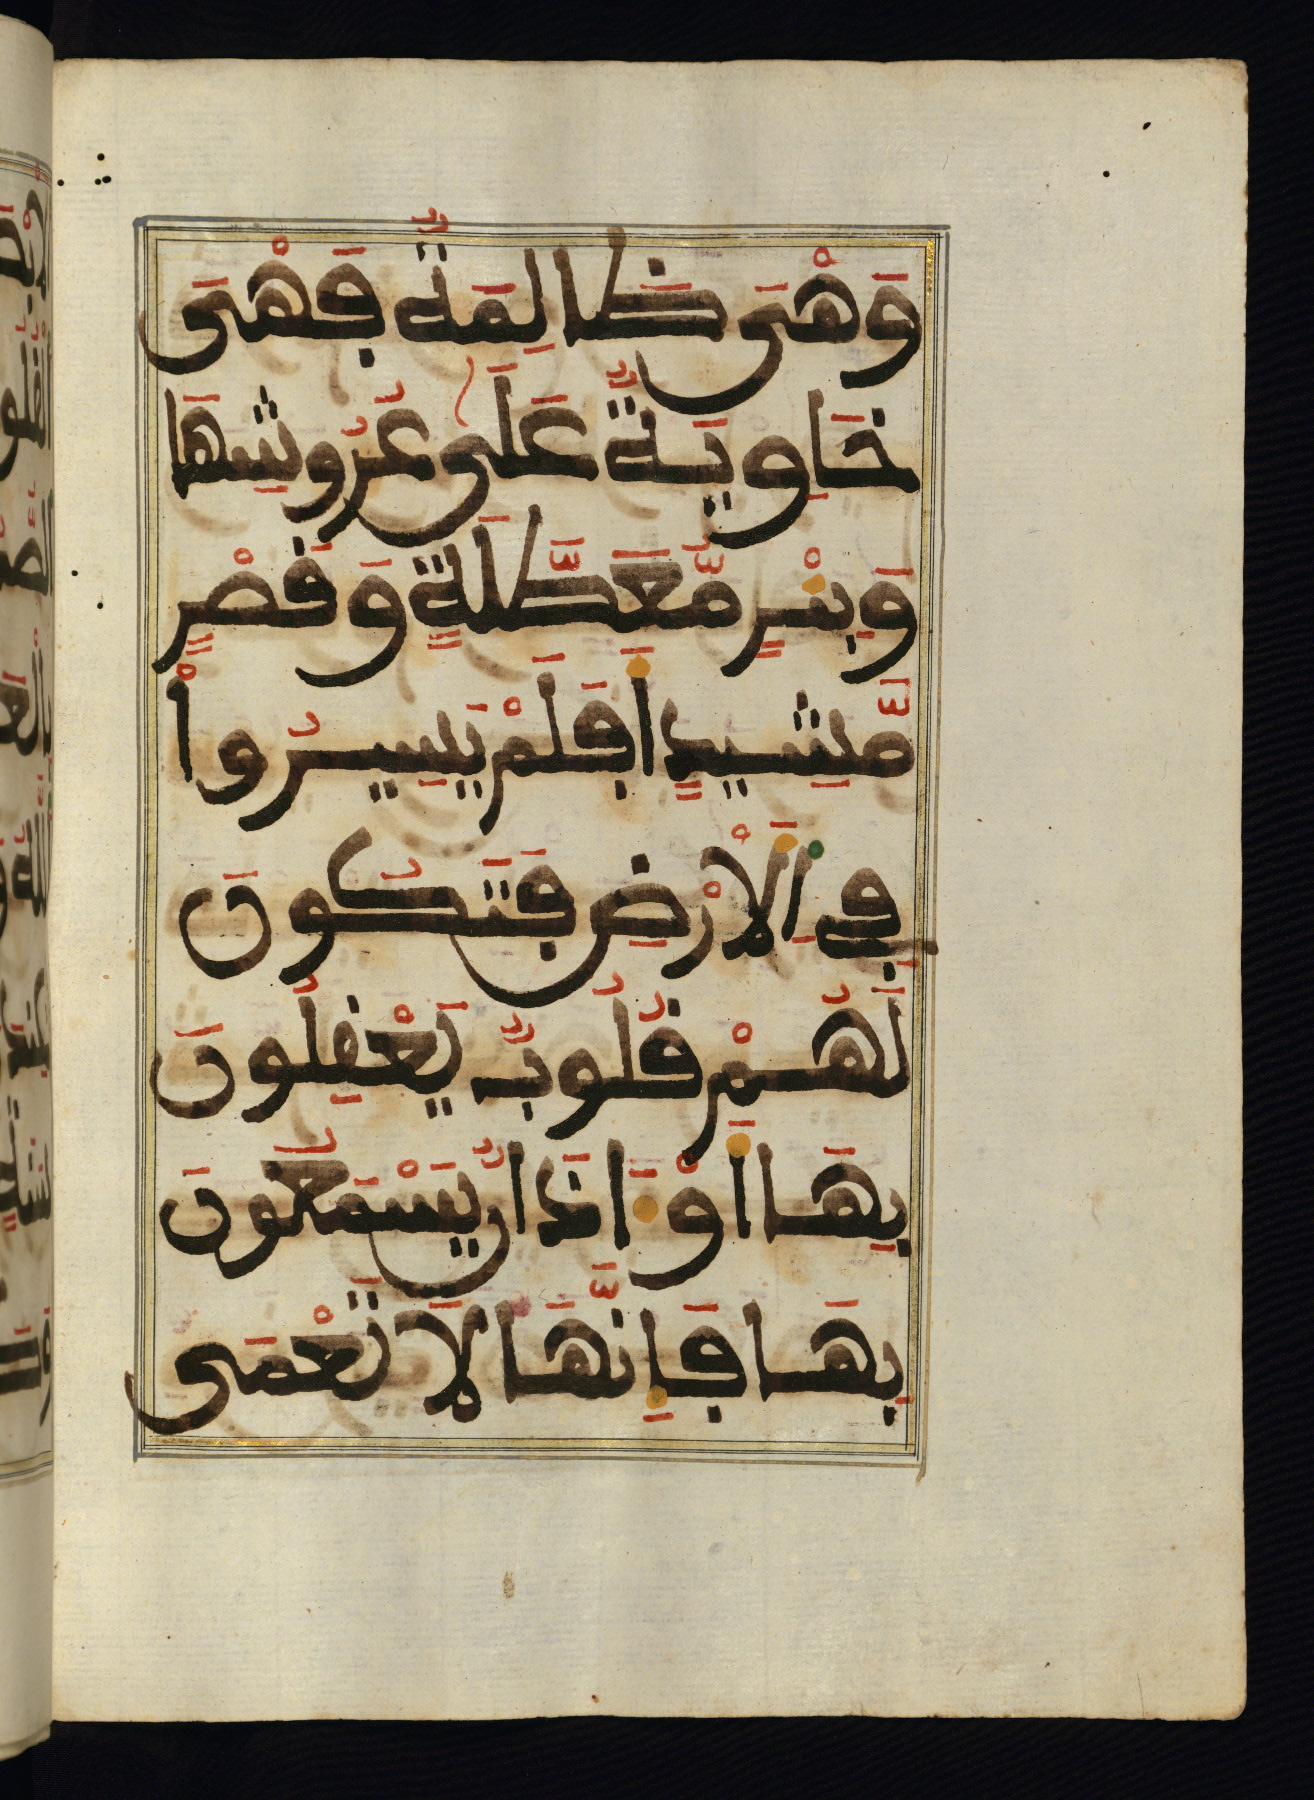 وَهْىَ ظَالِمَةٌ فَهْىَ
خَاوِيَةٌ عَلَىٰ عُرُوشِهَا
وَبِئْرٍ مُّعَطَّلَةٍ وَقَصْرٍ
مَّشِيدٍ أَفَلَمْ يَسِيرُواْ
فِي اِلَارْضِ فَتَكُونَ
لَهُمْ قُلُوبٌ يَعْقِلُونَ
بِهَا أَوَ اذَانٌ يَسْمَعُونَ
بِهَا فَإِنَّهَا لَا تَعْمَى